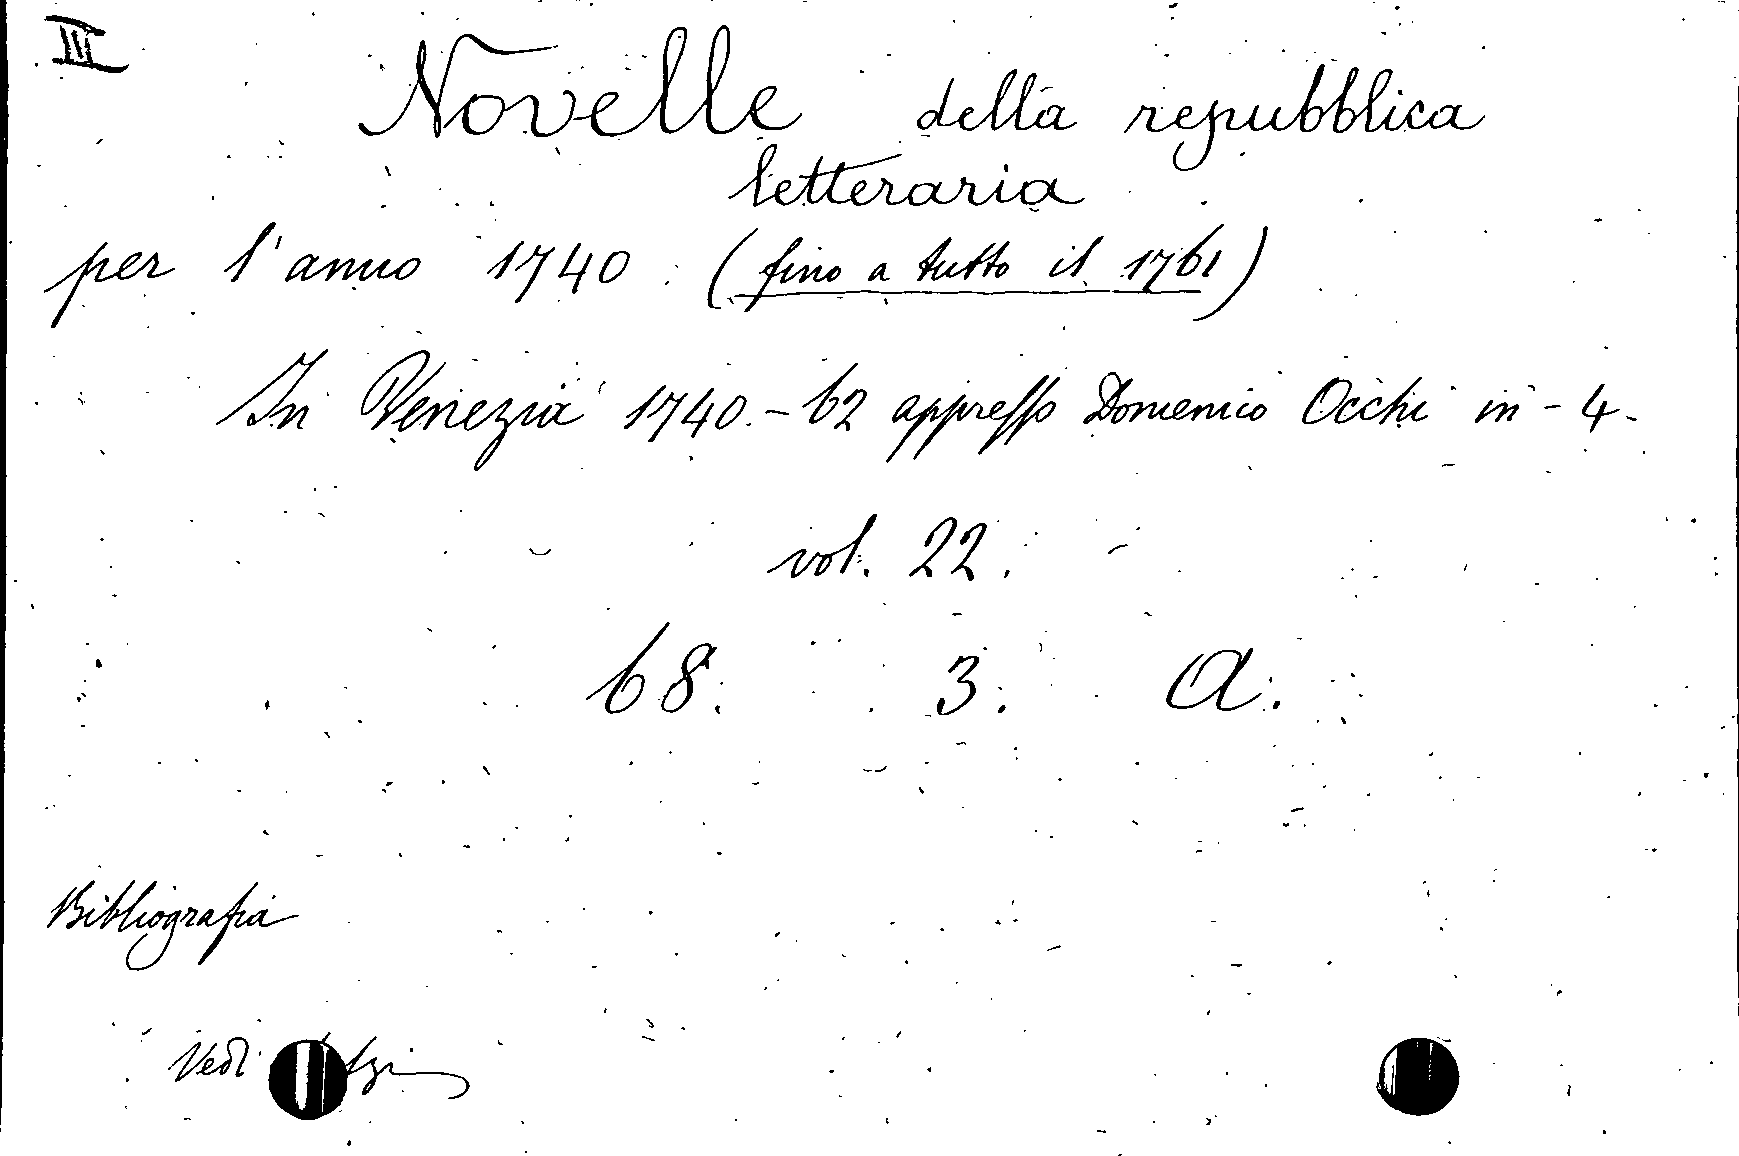 III
Novelle della repubblica
letteraria
per l'anno 1740 (fino a tutto il 1761)
In Venezia 1740.-62 appresso Domenico Occhi in-4.
vol. 22.
68. 3. A.
Bibliografia
Vedi